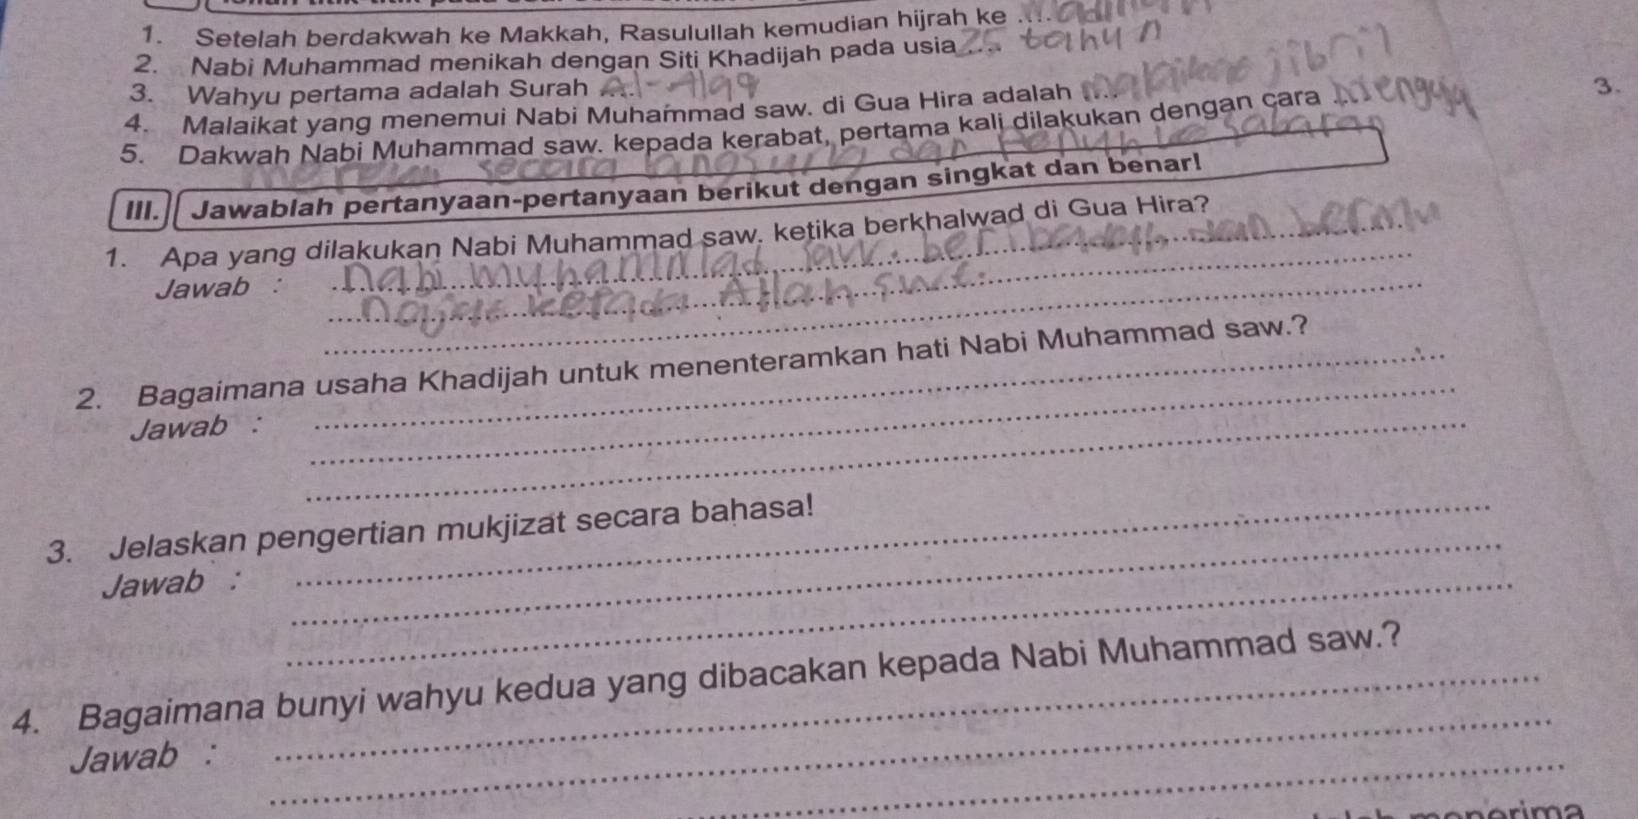 1. Setelah berdakwah ke Makkah, Rasulullah kemudian hijrah ke ....
2. Nabi Muhammad menikah dengan Siti Khadijah pada usia .... 25 tahun
3. Wahyu pertama adalah Surah .... Al-Alaq
4. Malaikat yang menemui Nabi Muhammad saw. di Gua Hira adalah .... jibril
3.
5. Dakwah Nabi Muhammad saw. kepada kerabat, pertama kali dilakukan dengan cara ....
secara langsung dan Penuh
III. Jawablah pertanyaan-pertanyaan berikut dengan singkat dan benar!
1. Apa yang dilakukan Nabi Muhammad saw. ketika berkhalwad di Gua Hira?
Jawab : nabi muhammad saw. beribadah dan
kepada Allah swt.
2. Bagaimana usaha Khadijah untuk menenteramkan hati Nabi Muhammad saw.?
Jawab :
3. Jelaskan pengertian mukjizat secara bahasa!
Jawab :
4. Bagaimana bunyi wahyu kedua yang dibacakan kepada Nabi Muhammad saw.?
Jawab :